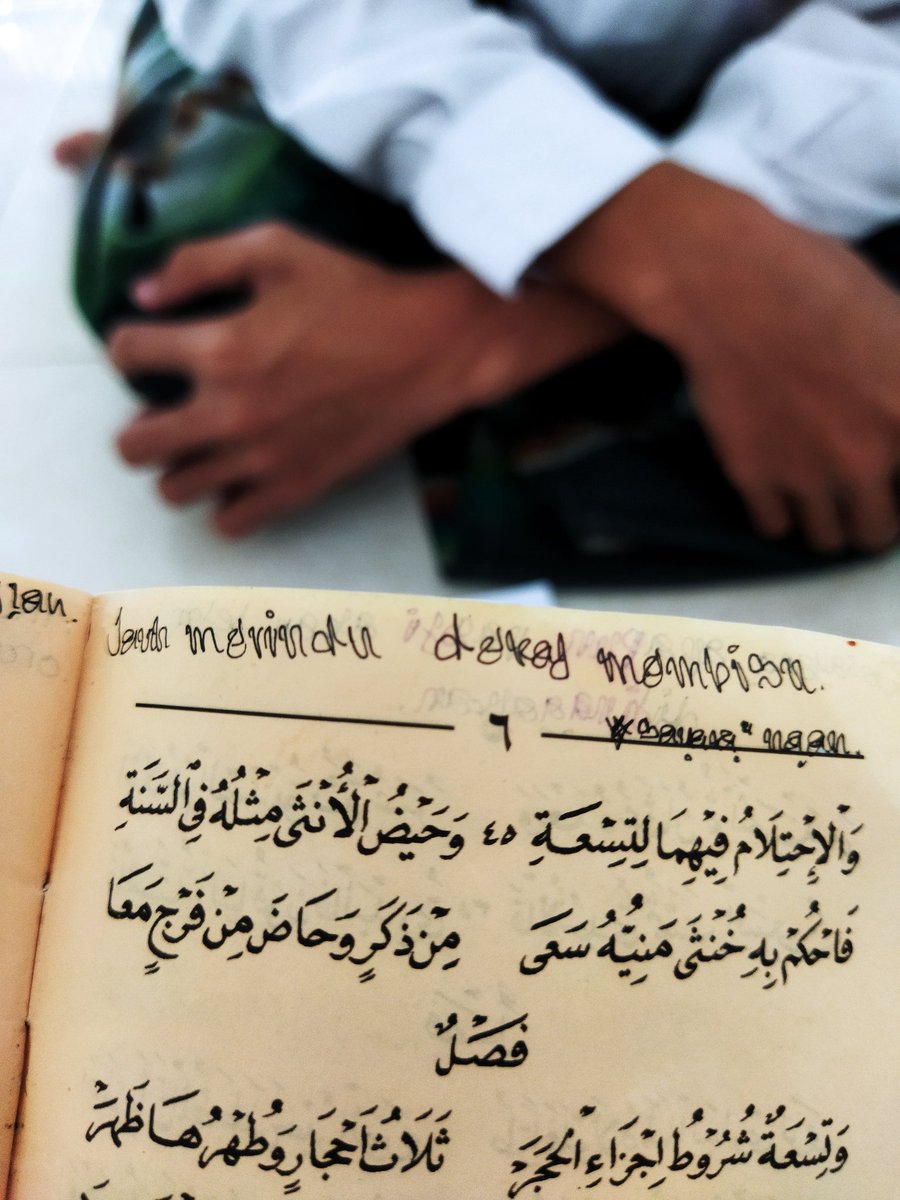 Jauh merindu dekay membisu.
٦
وَالْإِحْتِلَامُ فِيْهِمَا لِتِسْعَةِ ٤٥ وَحَيْضُ الْأُنْثَى مِثْلُهُ فِي السَّنَةِ
فَاحْكُمْ بِهِ خُنْثَى مَنِيُّهُ سَعَى مِنْ ذَكَرٍ وَحَاضَ مِنْ فَرْجٍ مَعَا
فَصْلٌ
وَتِسْعَةٌ شُرُوْطُ اِجْزَاءِ الْحَجَرْ ثَلَاثُ اَحْجَارٍ وَطُهْرُهَا ظَهَرْ